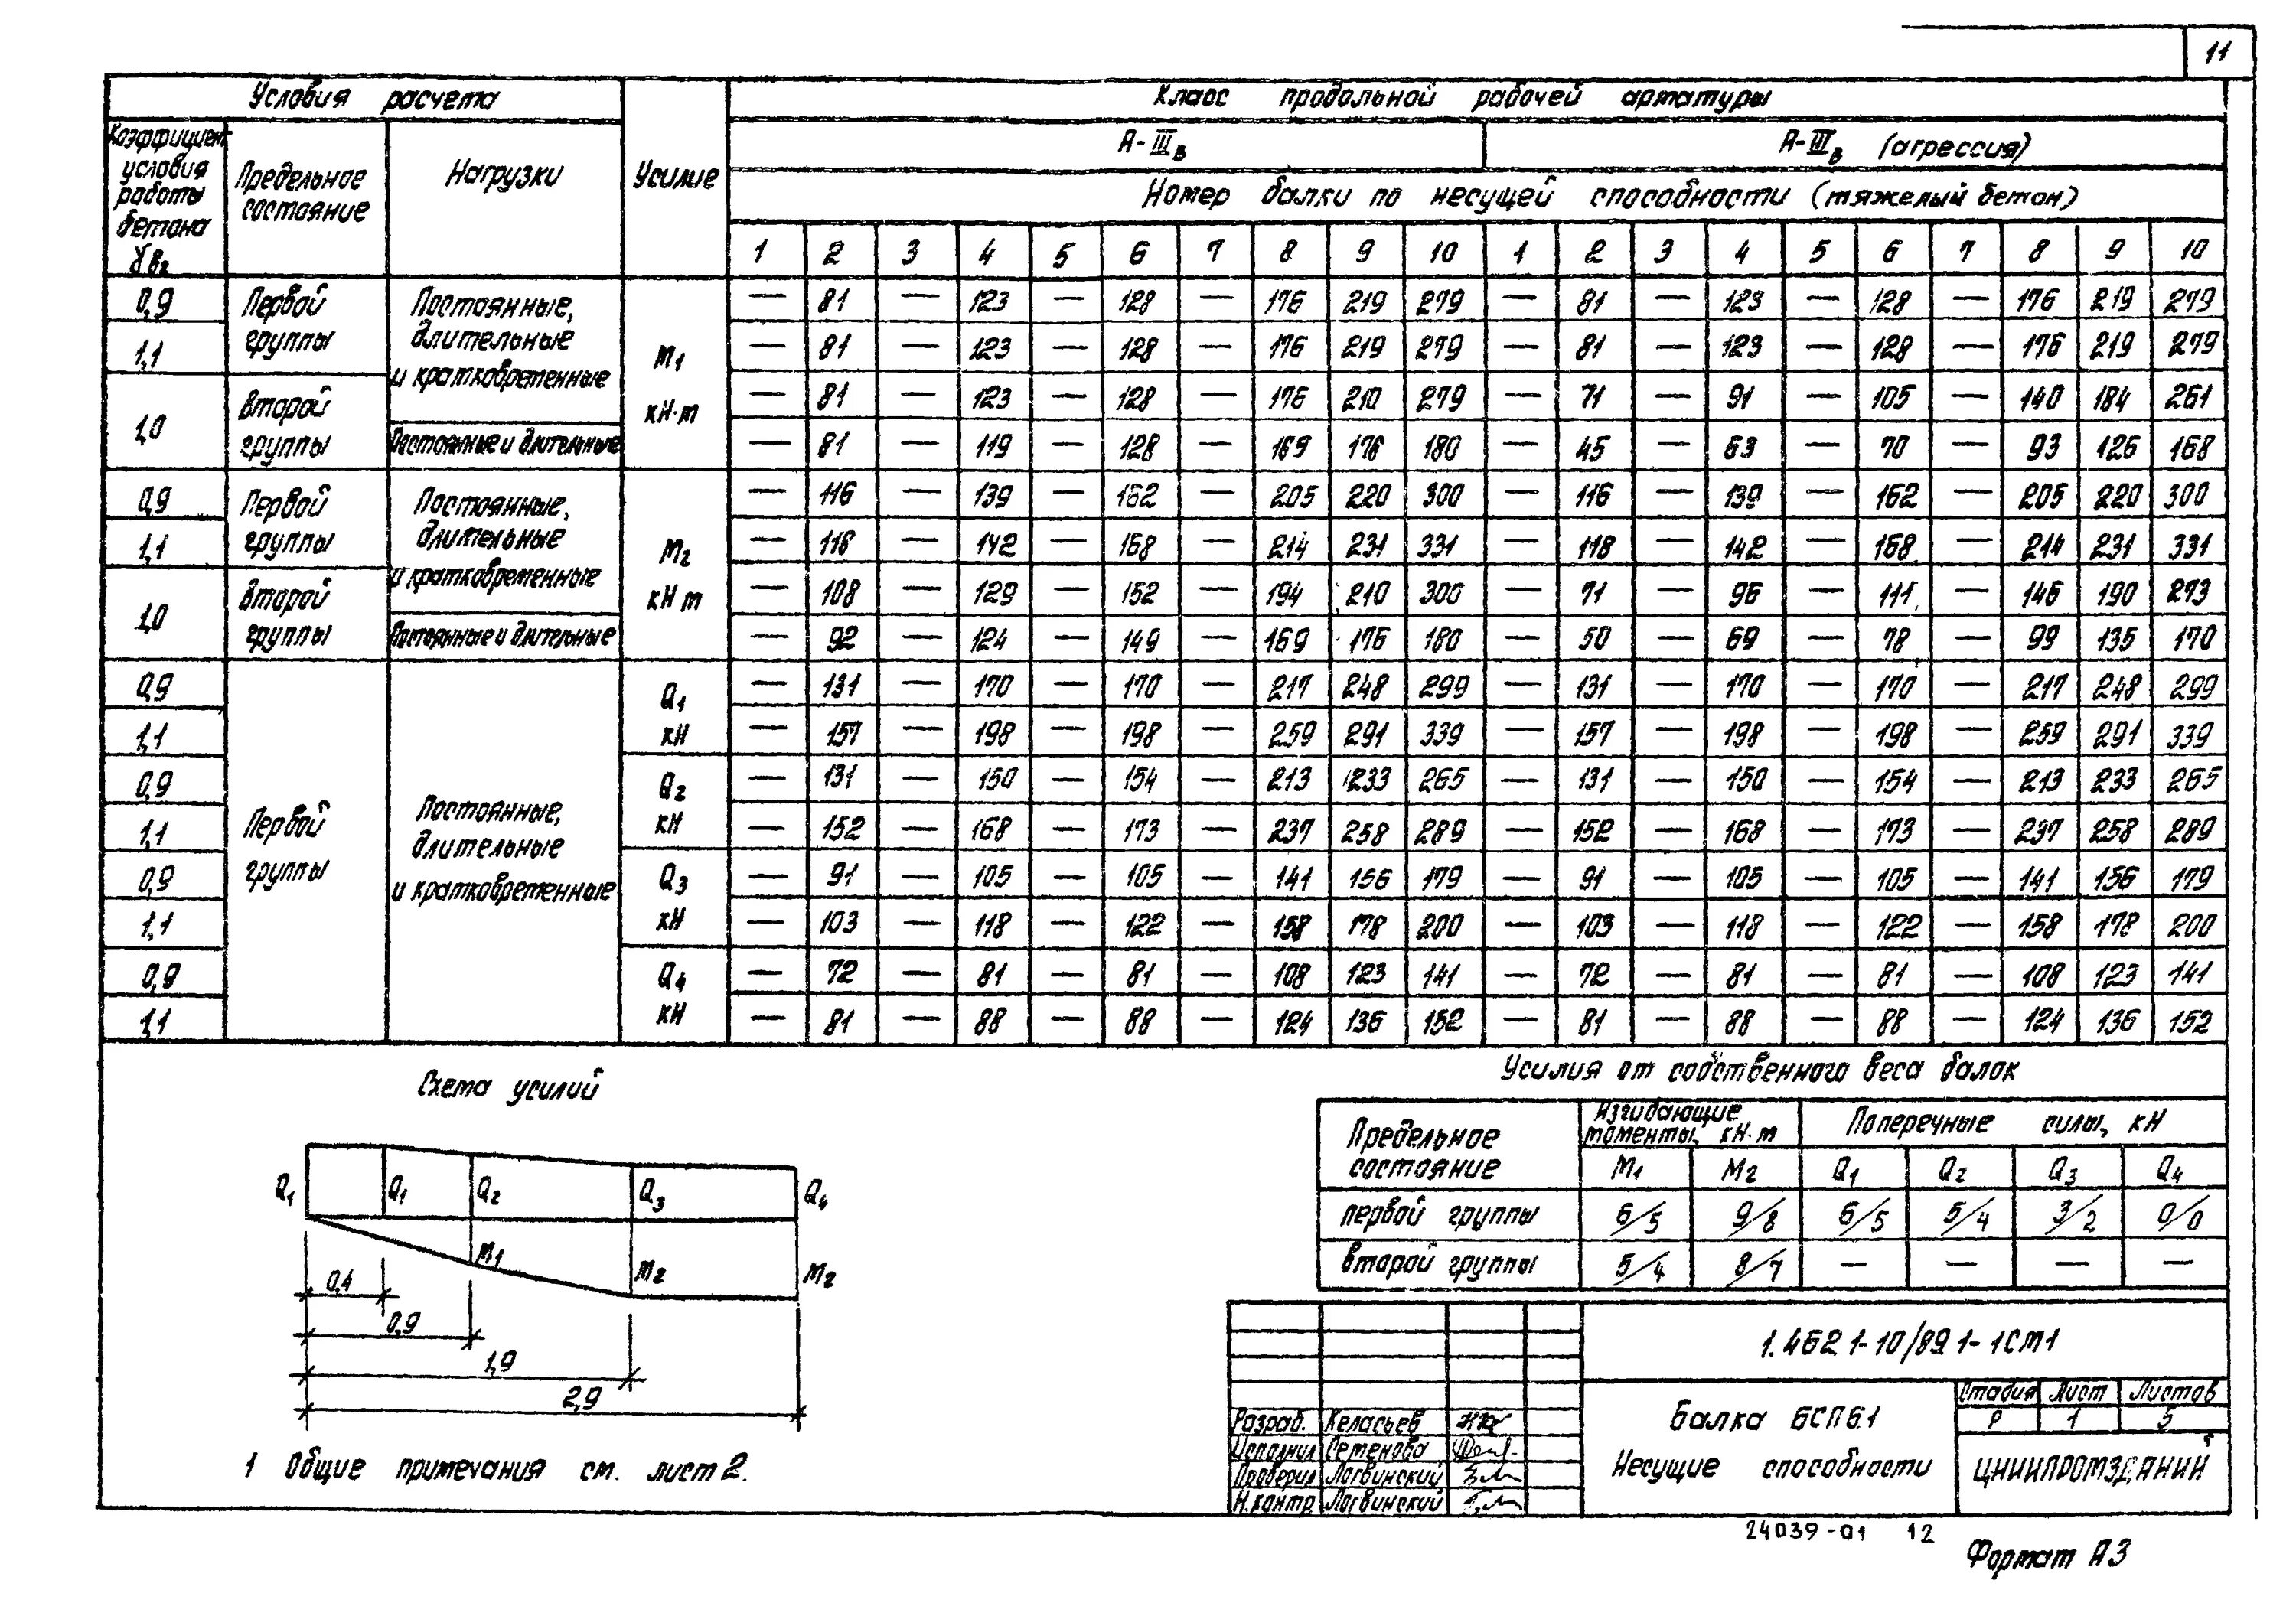 11
Условия расчета
Коэффициент условия работы бетона γв2
Предельное состояние
Нагрузки
Усилие
Класс продольной рабочей арматуры
А-IIIв
А-IIIв (агрессия)
Номер балки по несущей способности (тяжелый бетон)
1 2 3 4 5 6 7 8 9 10 1 2 3 4 5 6 7 8 9 10
0,9 Первой группы Постоянные, длительные и кратковременные М1 кН·м — 81 — 123 — 128 — 176 219 279 — 81 — 123 — 128 — 176 219 279
1,1 — 81 — 123 — 128 — 176 219 279 — 81 — 123 — 128 — 176 219 279
1,0 Второй группы — 81 — 123 — 128 — 176 210 279 — 71 — 91 — 105 — 140 184 261
Постоянные и длительные — 81 — 119 — 128 — 169 176 180 — 45 — 63 — 70 — 93 126 168
0,9 Первой группы Постоянные, длительные и кратковременные М2 кН м — 116 — 139 — 162 — 205 220 300 — 116 — 139 — 162 — 205 220 300
1,1 — 118 — 142 — 168 — 214 231 331 — 118 — 142 — 168 — 214 231 331
1,0 Второй группы — 108 — 129 — 152 — 194 210 300 — 71 — 96 — 111 — 146 190 273
Постоянные и длительные — 92 — 124 — 149 — 169 176 180 — 50 — 69 — 78 — 99 135 170
0,9 Первой группы Постоянные, длительные и кратковременные Q1 кН — 131 — 170 — 170 — 217 248 299 — 131 — 170 — 170 — 217 248 299
1,1 — 157 — 198 — 198 — 259 291 339 — 157 — 198 — 198 — 259 291 339
0,9 Q2 кН — 131 — 150 — 154 — 213 233 265 — 131 — 150 — 154 — 213 233 265
1,1 — 152 — 168 — 173 — 237 258 289 — 152 — 168 — 173 — 237 258 289
0,9 Q3 кН — 91 — 105 — 105 — 141 156 179 — 91 — 105 — 105 — 141 156 179
1,1 — 103 — 118 — 122 — 158 178 200 — 103 — 118 — 122 — 158 178 200
0,9 Q4 кН — 72 — 81 — 81 — 108 123 141 — 72 — 81 — 81 — 108 123 141
1,1 — 81 — 88 — 88 — 124 136 152 — 81 — 88 — 88 — 124 136 152
Схема усилий
Q1 Q1 Q2 Q3 Q4
М1 М2 М2
0,4
0,9
1,9
2,9
1 Общие примечания см. лист 2.
Усилия от собственного веса балок
Предельное состояние
Изгибающие моменты, кН·м
Поперечные силы, кН
М1 М2 Q1 Q2 Q3 Q4
первой группы 6/5 9/8 6/5 5/4 3/2 0/0
второй группы 5/4 8/7 — — — —
1.462 1-10/89 1-1СМ1
Балка БСП6.1
Несущие способности
Стадия Лист Листов
Р 1 5
ЦНИИПРОМЗДАНИЙ
Разраб. Келасьев
Исполнил Семенова
Проверил Логвинский
Н.контр. Логвинский
24039-01 12
Формат А3